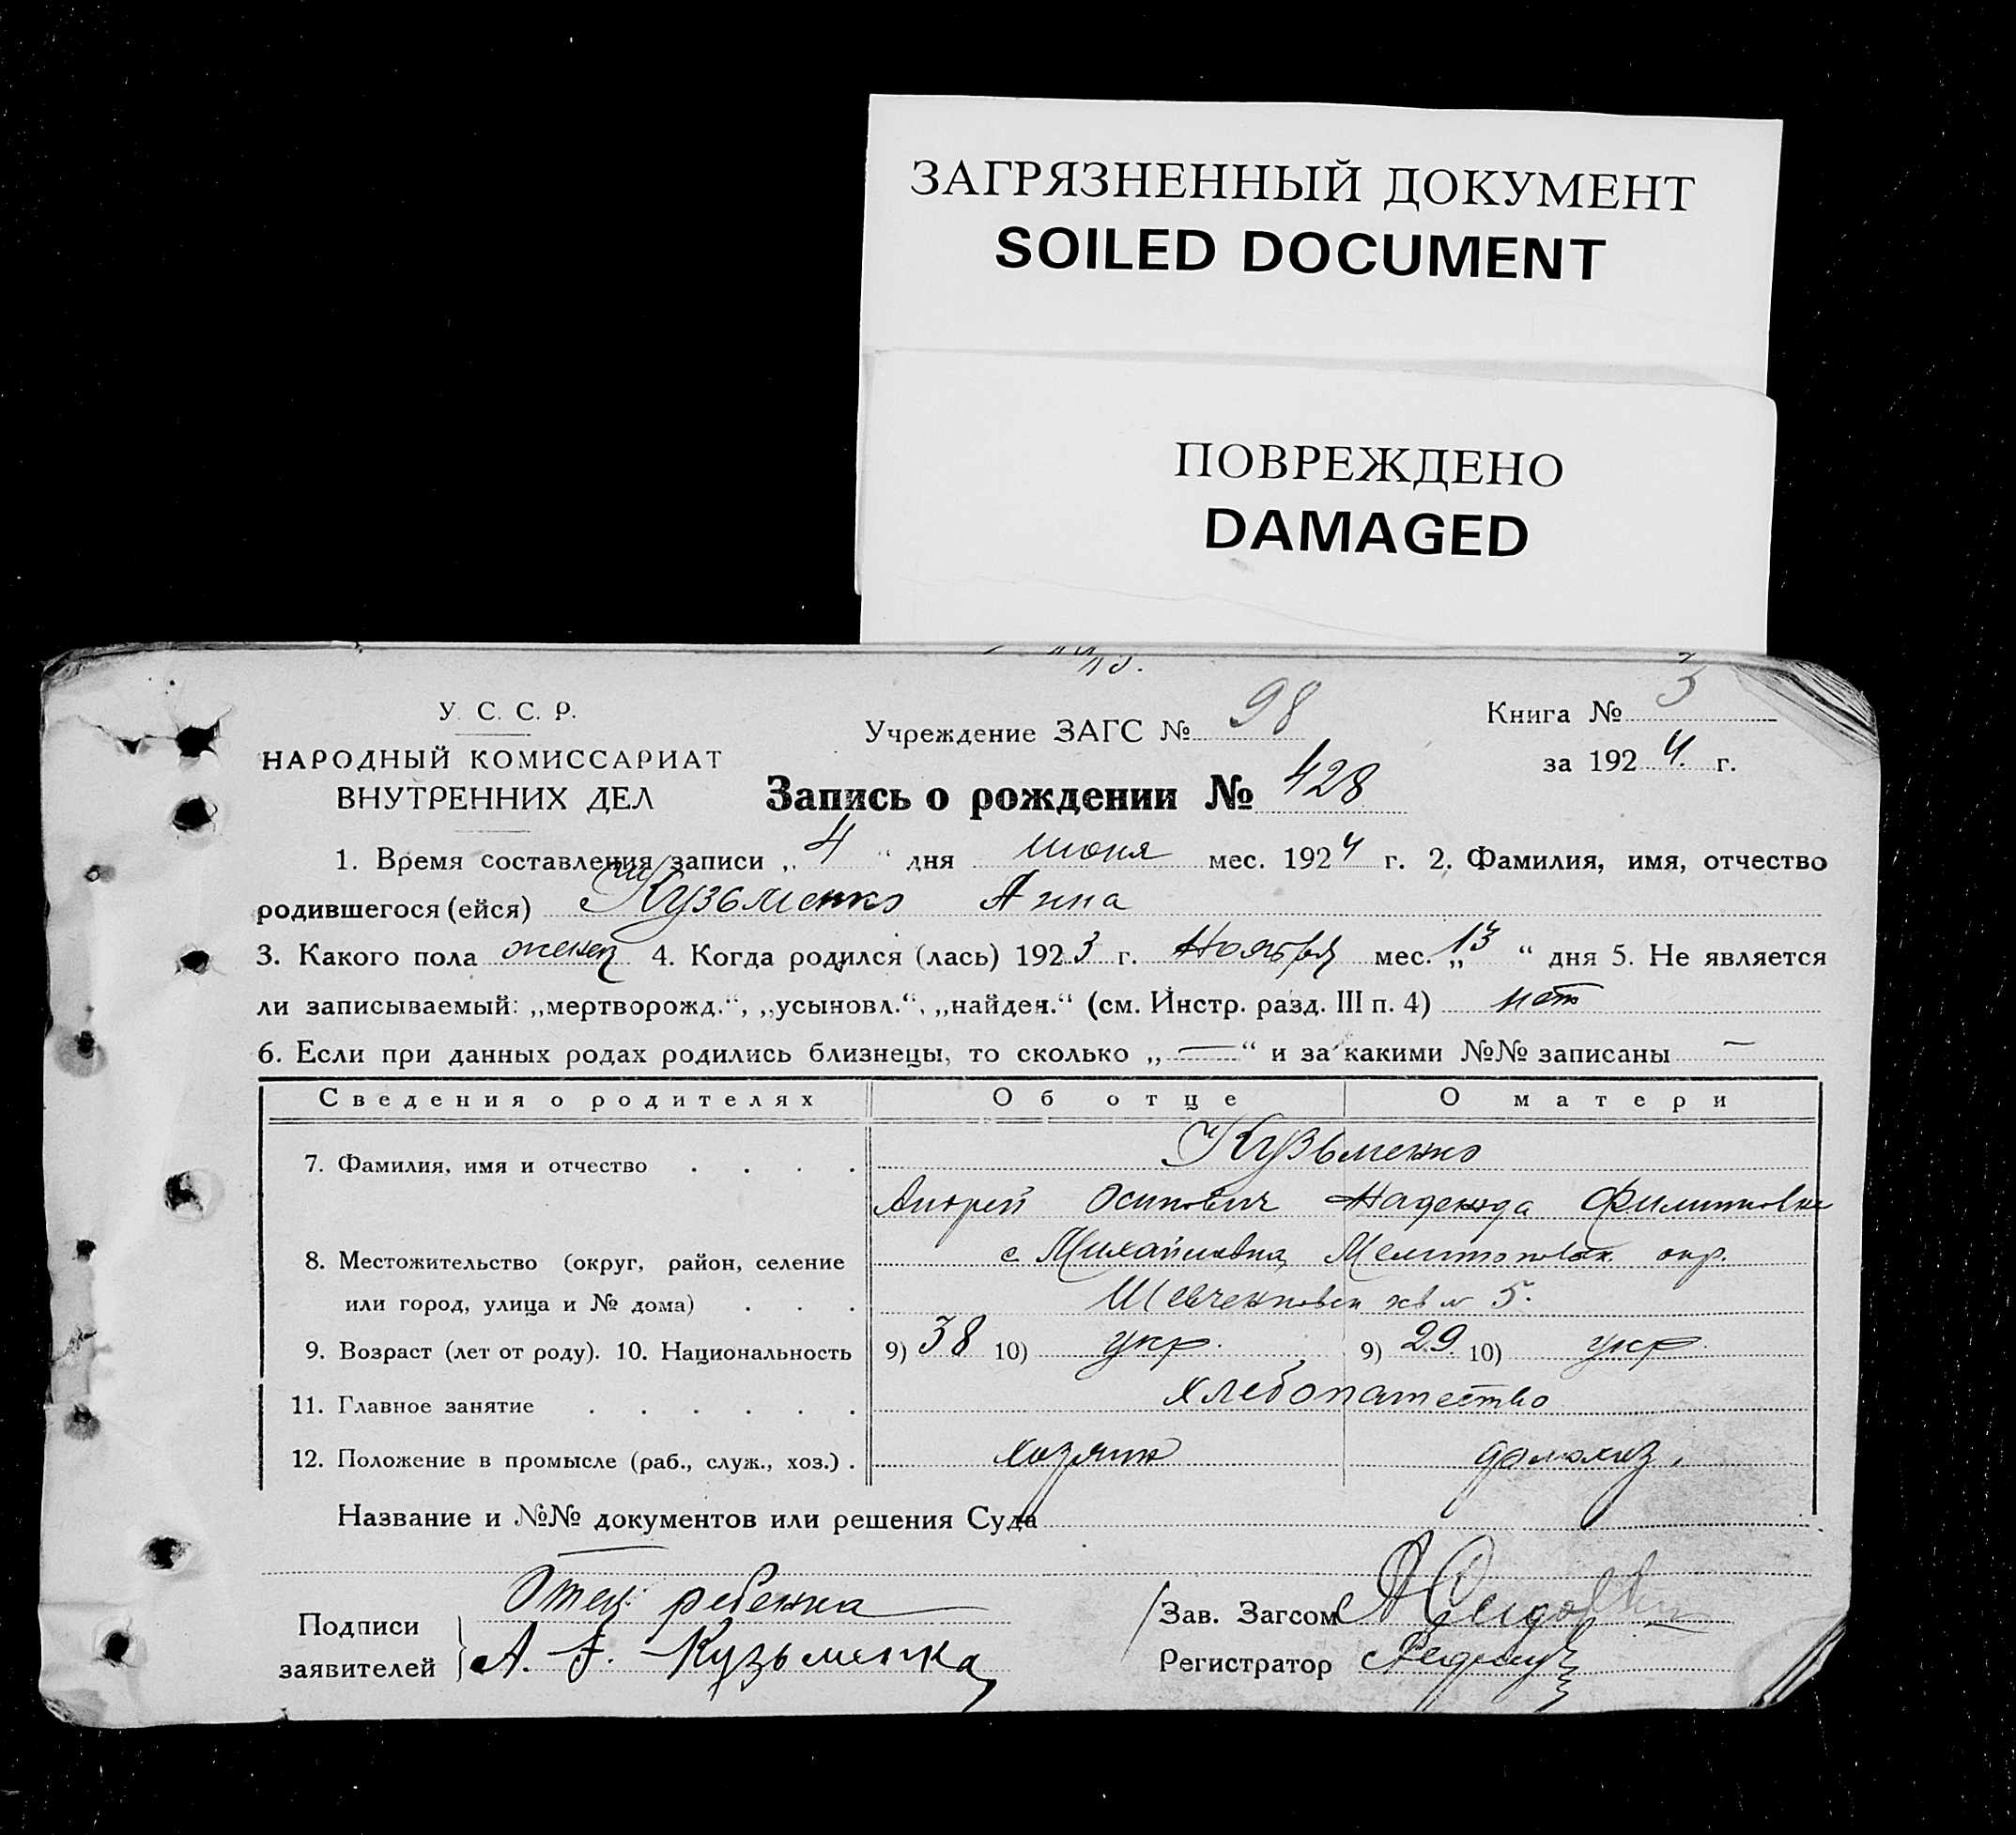 ЗАГРЯЗНЕННЫЙ ДОКУМЕНТ
SOILED DOCUMENT
ПОВРЕЖДЕНО
DAMAGED
У. С. С. Р.
НАРОДНЫЙ КОМИССАРИАТ
ВНУТРЕННИХ ДЕЛ
Учреждение ЗАГС № 98
Книга № 3
за 1924 г.
Запись о рождении № 428
1. Время составления записи „4“ дня июня мес. 1924 г. 2. Фамилия, имя, отчество
родившегося (ейся) Кузьменко Анна
3. Какого пола женск 4. Когда родился (лась) 1923 г. Ноября мес. „13“ дня 5. Не является
ли записываемый: „мертворожд.“, „усыновл.“, „найден.“ (см. Инстр. разд. III п. 4) нет
6. Если при данных родах родились близнецы, то сколько „—“ и за какими №№ записаны —
Сведения о родителях Об отце О матери
7. Фамилия, имя и отчество . . . . Кузьменко
Андрей Осипович Надежда Филипповна
8. Местожительство (округ, район, селение с. Михайловка Мелитопольск. окр.
или город, улица и № дома) . . . Шевченковск 5.
9. Возраст (лет от роду). 10. Национальность 9) 38 10) укр. 9) 29 10) укр.
11. Главное занятие . . . . . . хлебопашество
12. Положение в промысле (раб., служ., хоз.) . хозяин домохоз.
Название и №№ документов или решения Суда
Подписи
заявителей
Отец ребенка
А. Кузьменко
Зав. Загсом
Регистратор